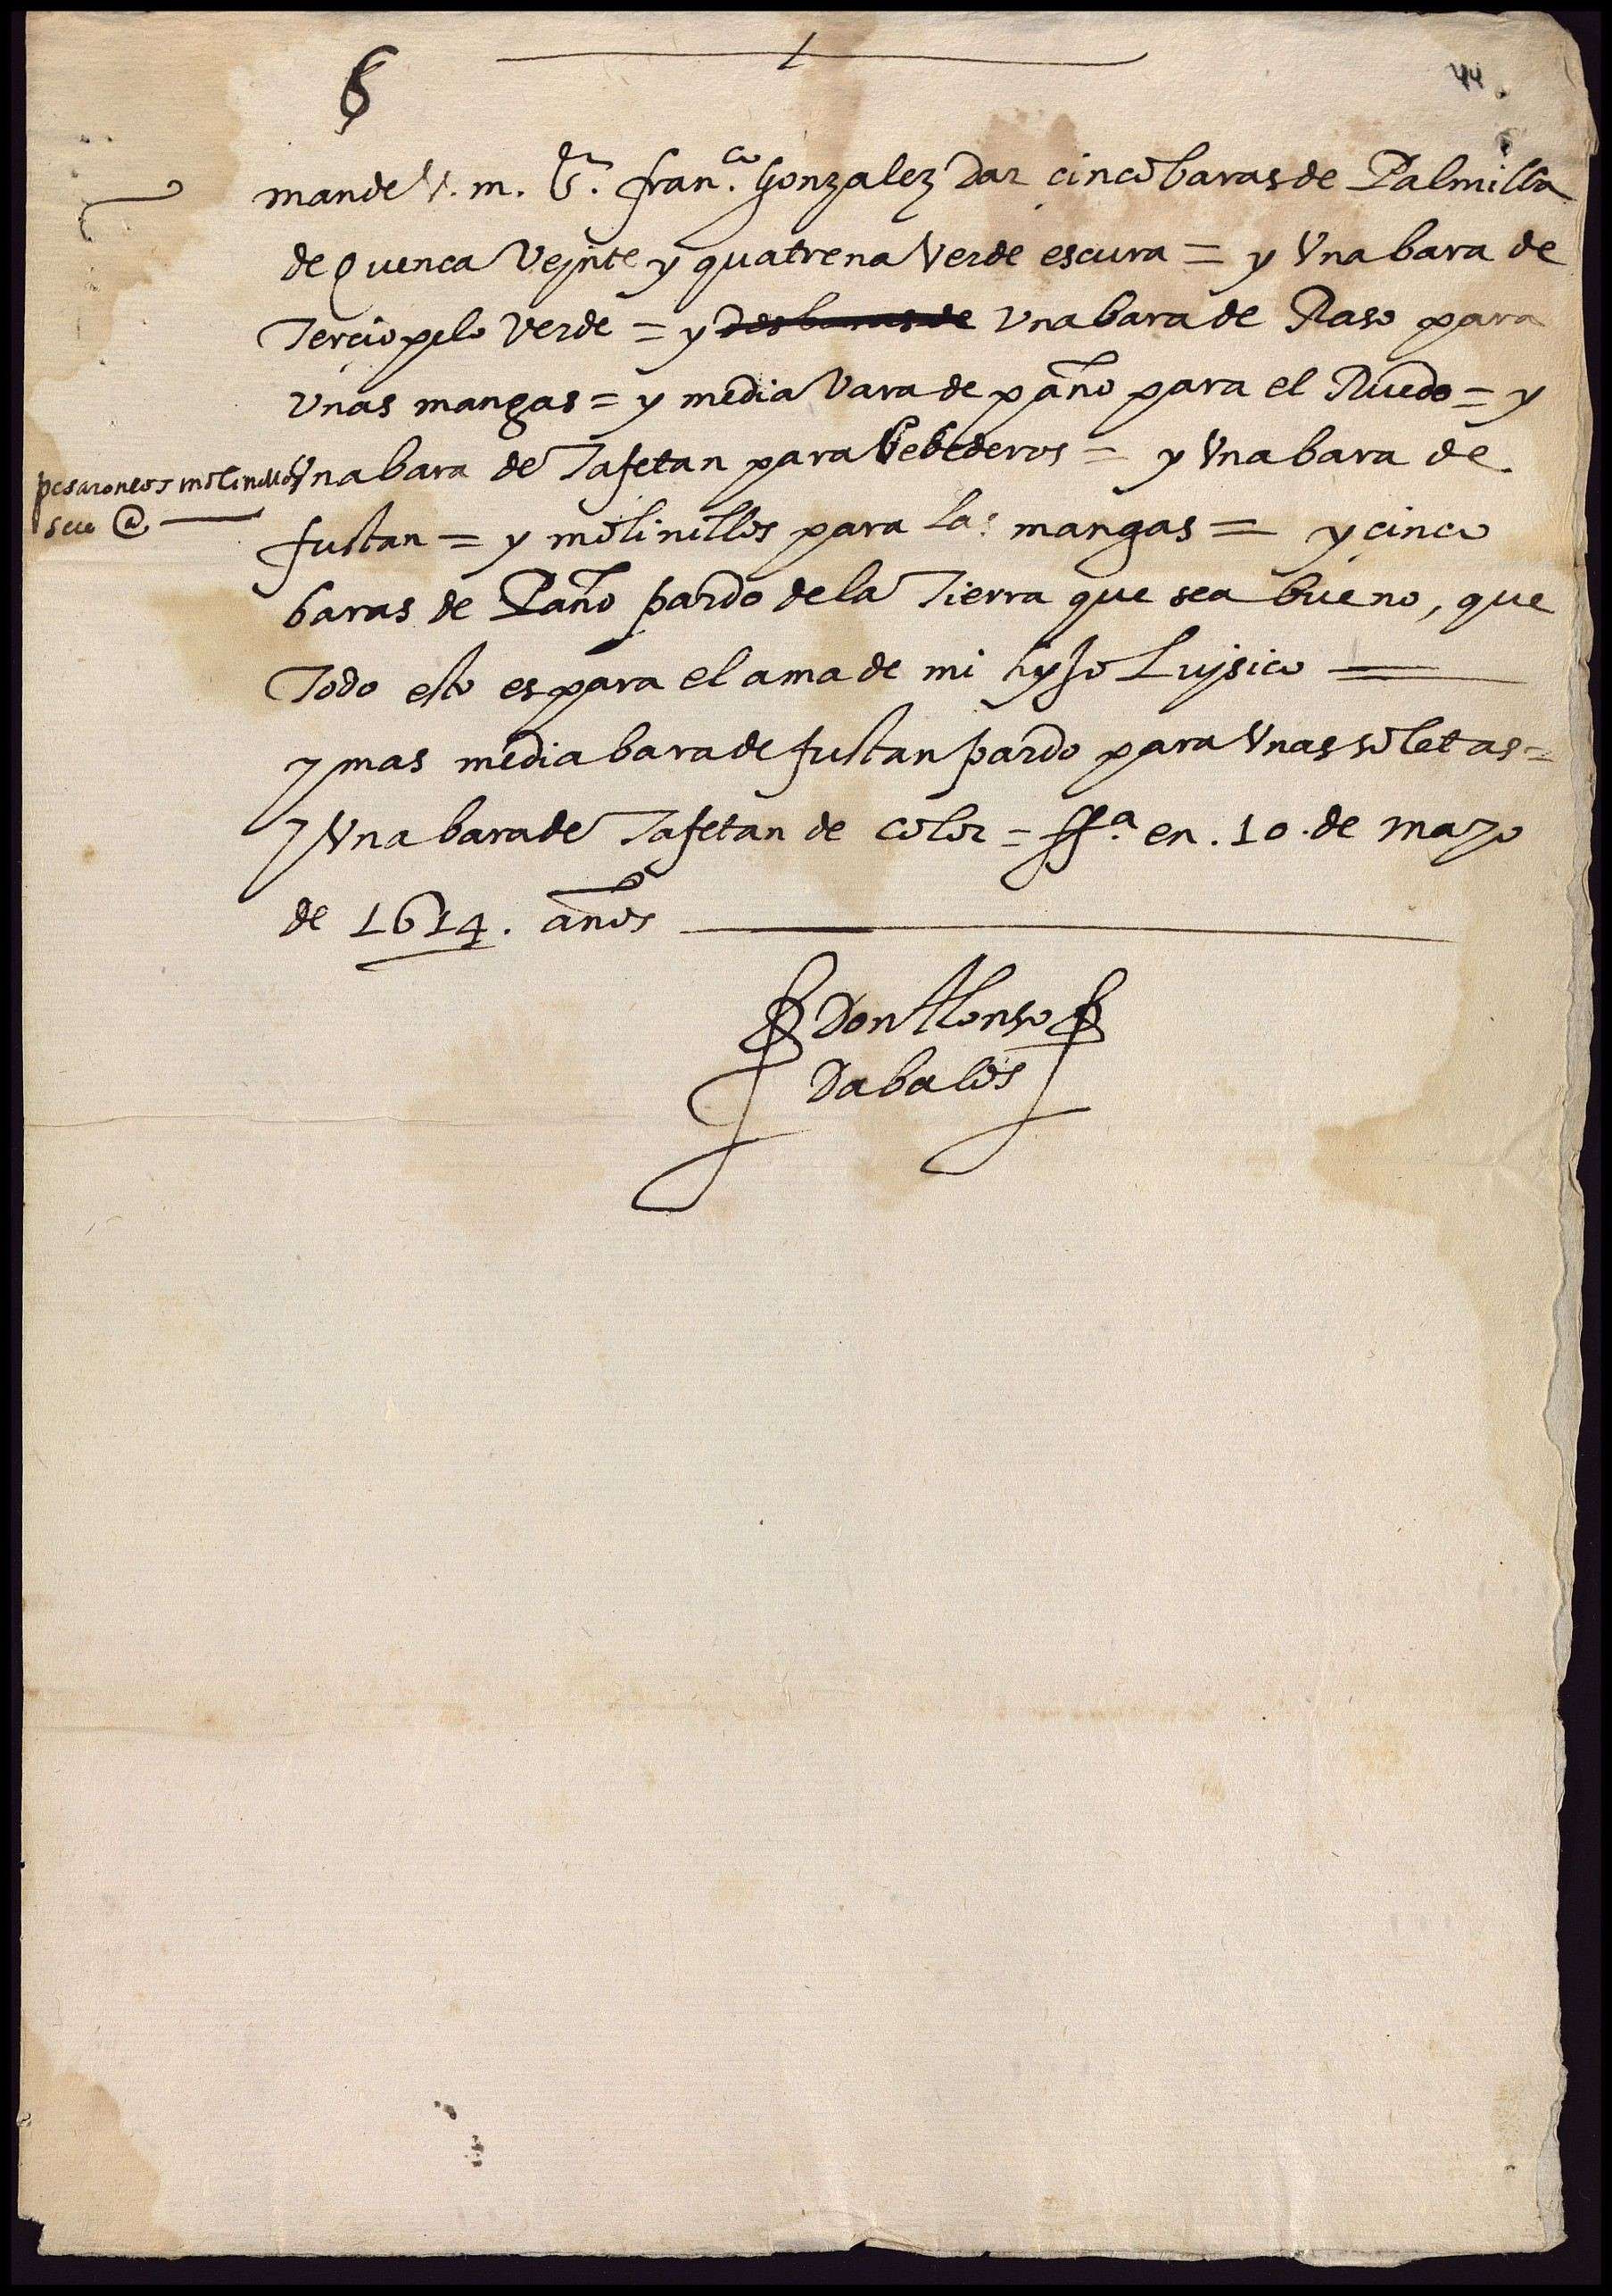 6
44
mande V. m. Sr. franco. Gonzalez Dar cinco baras de Palmilla
de Quenca Vejnte y quatrena Verde escura = y Vna bara de
Terciopelo Verde = y dos baras de Vna bara de Raso para
Vnas mangas = y media Vara de paño para el Ruedo = y
Vna bara de Tafetan para bebederos = y Vna bara de
pesaron los molinillos
fustan = y molinillos para las mangas = y cinco
baras de Paño pardo de la Tierra que sea bueno, que
Todo esto es para el ama de mi hyjo Lujsico =
y mas media bara de fustan pardo para Vnas soletas =
y Vna bara de Tafetan de color = ffa. en . 10 . de mayo
de 1614 . años
Don Alonso
Dabalos